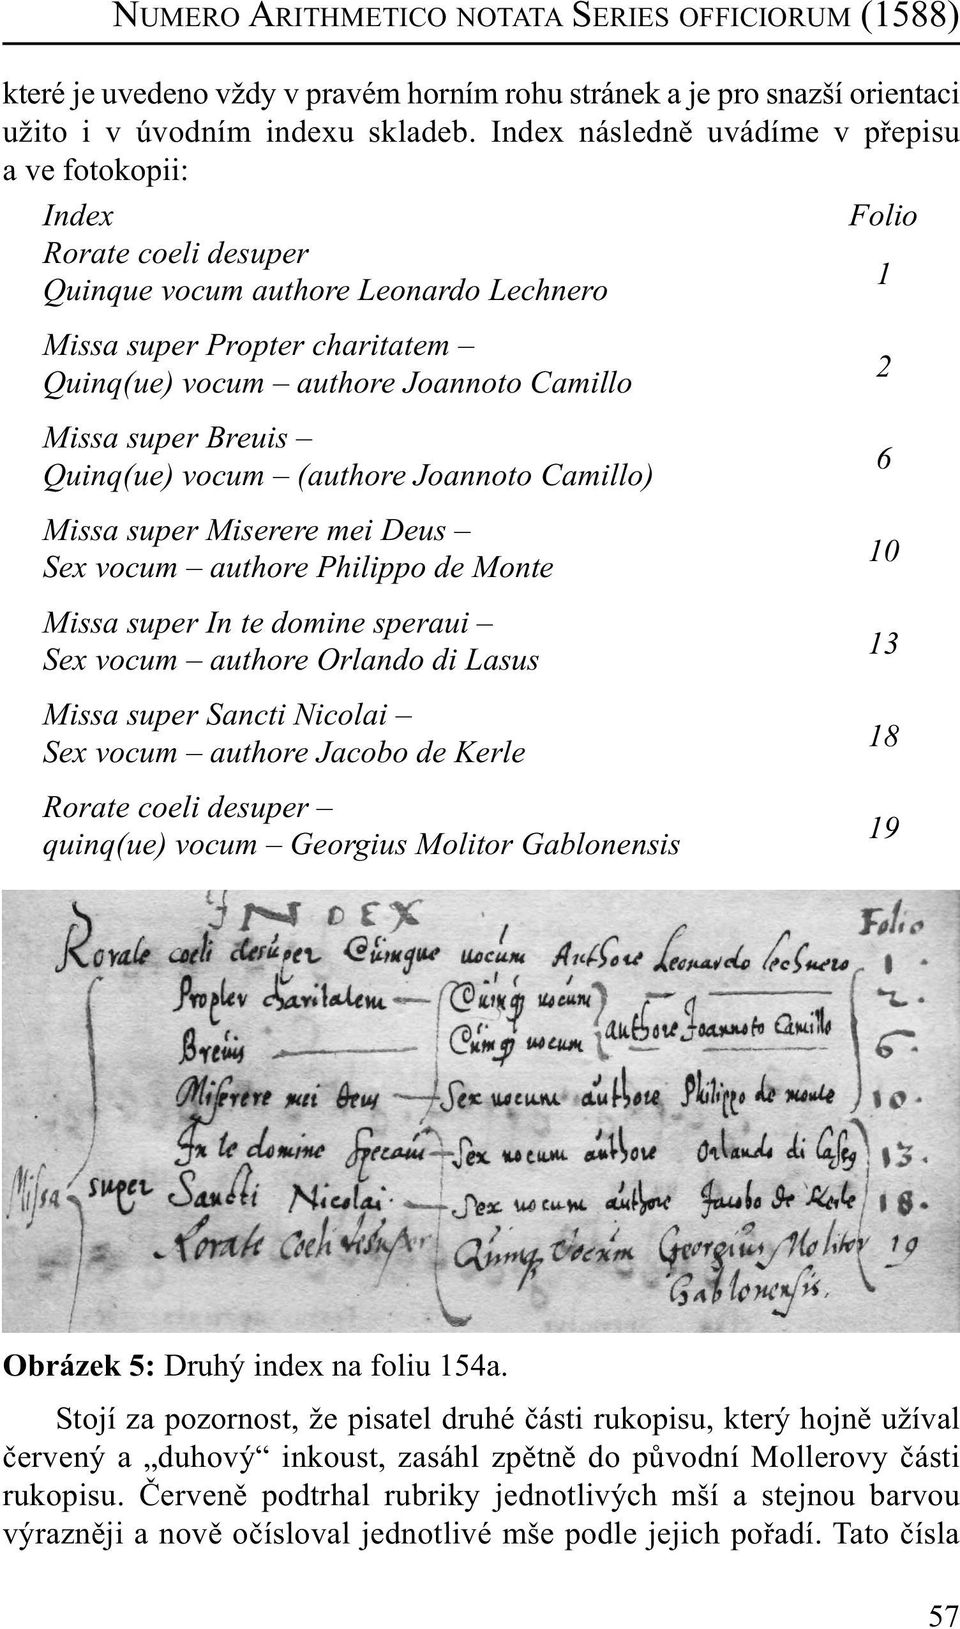 NUMERO ARITHMETICO NOTATA SERIES OFFICIORUM (1588)
které je uvedeno vždy v pravém horním rohu stránek a je pro snazší orientaci
užito i v úvodním indexu skladeb. Index následně uvádíme v přepisu
a ve fotokopii:
Index Folio
Rorate coeli desuper
Quinque vocum authore Leonardo Lechnero 1
Missa super Propter charitatem –
Quinq(ue) vocum – authore Joannoto Camillo 2
Missa super Breuis –
Quinq(ue) vocum – (authore Joannoto Camillo) 6
Missa super Miserere mei Deus –
Sex vocum – authore Philippo de Monte 10
Missa super In te domine speraui –
Sex vocum – authore Orlando di Lasus 13
Missa super Sancti Nicolai –
Sex vocum – authore Jacobo de Kerle 18
Rorate coeli desuper –
quinq(ue) vocum – Georgius Molitor Gablonensis 19
INDEX Folio
Rorate coeli desuper Quinque uocum Authore Leonardo lechnero 1.
Propter charitatem — Quinq uocum 2.
Breuis — Quinq uocum authore Joannoto Camillo 6.
Miserere mei Deus — Sex uocum authore Philippo de monte 10.
In te domine — Sex uocum authore Orlando di 13.
Missa super Sancti Nicolai — Sex uocum authore Jacobo de Kerle 18.
Rorate coeli desuper Quinq Vocum Georgius Molitor 19
Gablonensis.
Obrázek 5: Druhý index na foliu 154a.
Stojí za pozornost, že pisatel druhé části rukopisu, který hojně užíval
červený a „duhový“ inkoust, zasáhl zpětně do původní Mollerovy části
rukopisu. Červeně podtrhal rubriky jednotlivých mší a stejnou barvou
výrazněji a nově očísloval jednotlivé mše podle jejich pořadí. Tato čísla
57